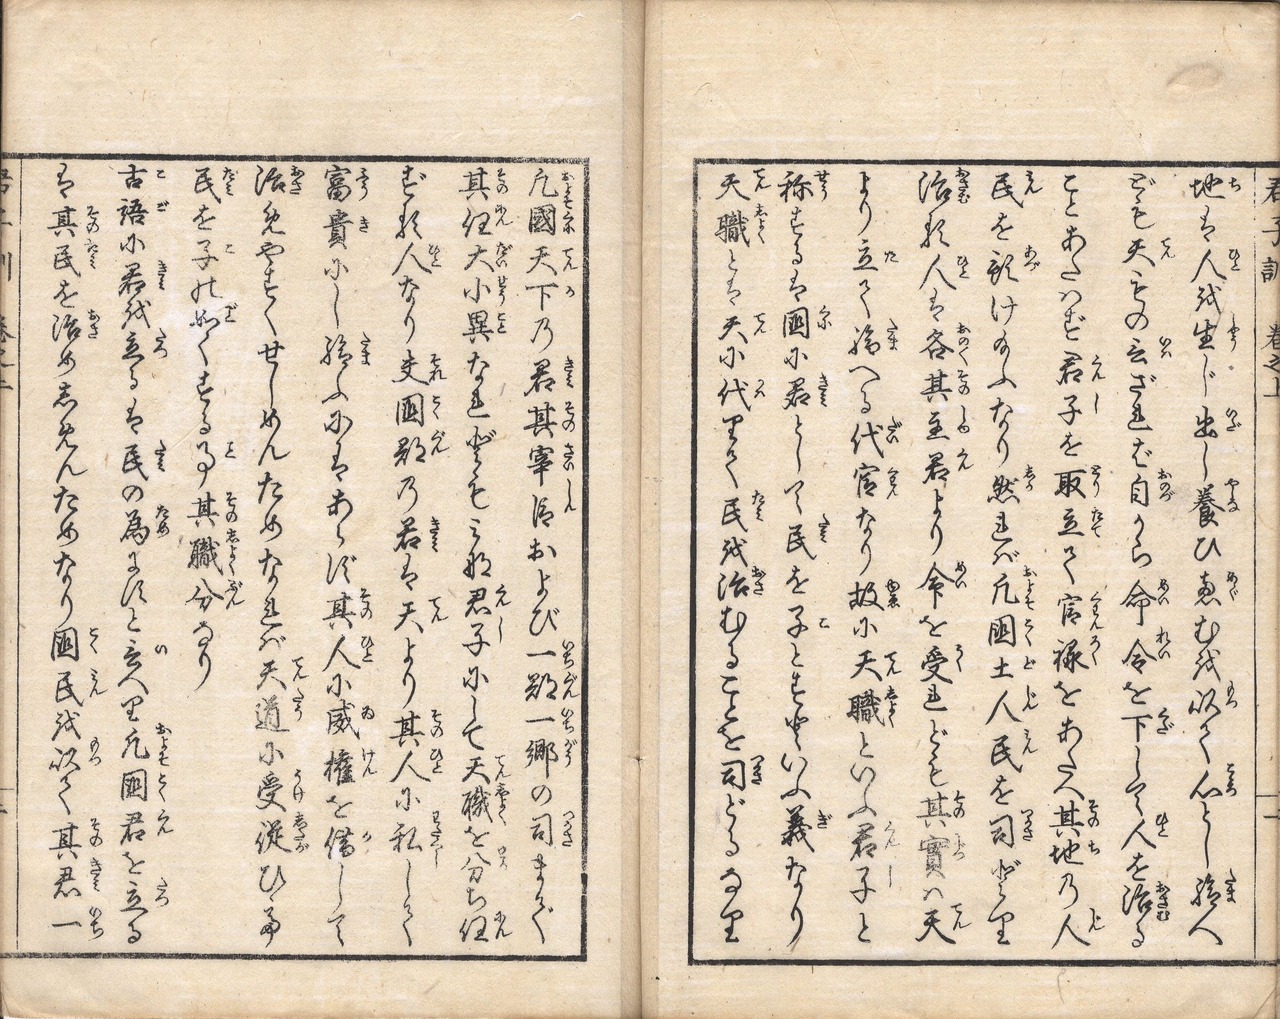 君子訓 巻之上
地は人を生じ出し養ひ恵むを以て心とし給へ
ども天もの言ざれば自から命令を下して人を治る
ことあたはず君子を取立て官禄をあたへ其地の人
民を預け給ふなり然れば凡國土人民を司どり
治る人は各其主君より命を受れども其實は天
より立て給へる代官なり故に天職といふ君子と
称するは國に君として民を子とすといふ義なり
天職とは天に代りて民を治むることを司どるなり
凡國天下の君其宰臣および一郡一郷の司まで
其任大小異なれどもみな君子にして天職を分ち任
ずる人なり夫國郡の君は天より其人に私して
富貴にし給ふにはあらず其人に威權を借して
治めやすくせしめんためなれば天道に受従ひ
民を子の如くする事其職分なり
古語に君を立るは民の為にすと言へり凡國君を立る
は其民を治めしめんためなり國民を以て其君一